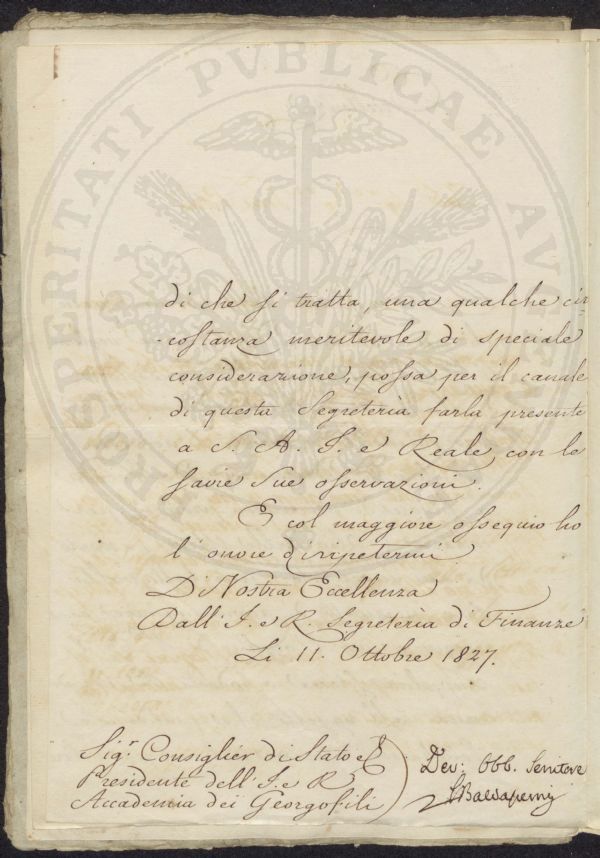 PROSPERITATI PVBLICAE AVGENDAE
di che si tratta, una qualche cir-
-costanza meritevole di speciale
considerazione, possa per il canale
di questa Segreteria farla presente
a S. A. I. e Reale con le
savie sue osservazioni.
E col maggiore ossequio ho
l'onore di ripetermi
Di Vostra Eccellenza
Dall' I. e R. Segreteria di Finanze
Li 11. Ottobre 1827.
Sig.r Consiglier di Stato e
Presidente dell' I. e R.
Accademia dei Georgofili
Dev: Obb. Servitore